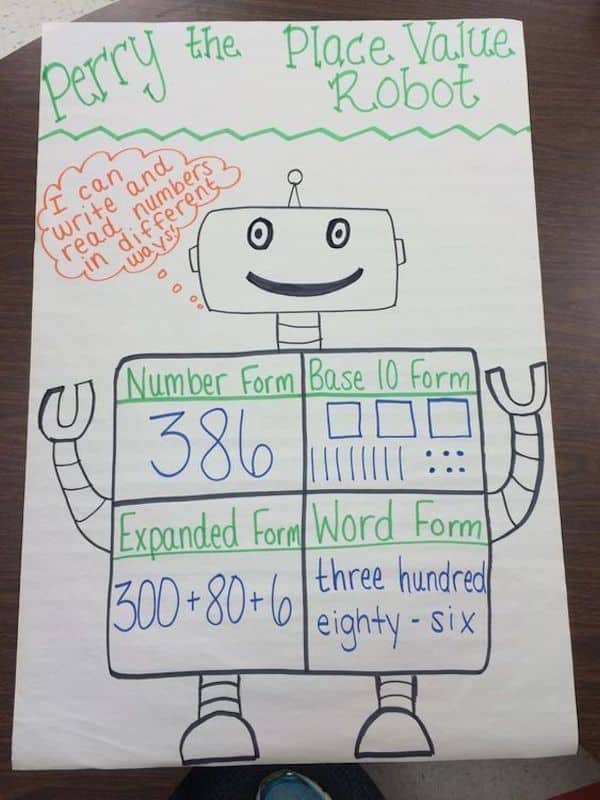 Perry the Place Value
Robot
I can
write and
read numbers
in different
ways!
Number Form
386
Base 10 Form
Expanded Form
300+80+6
Word Form
three hundred
eighty - six